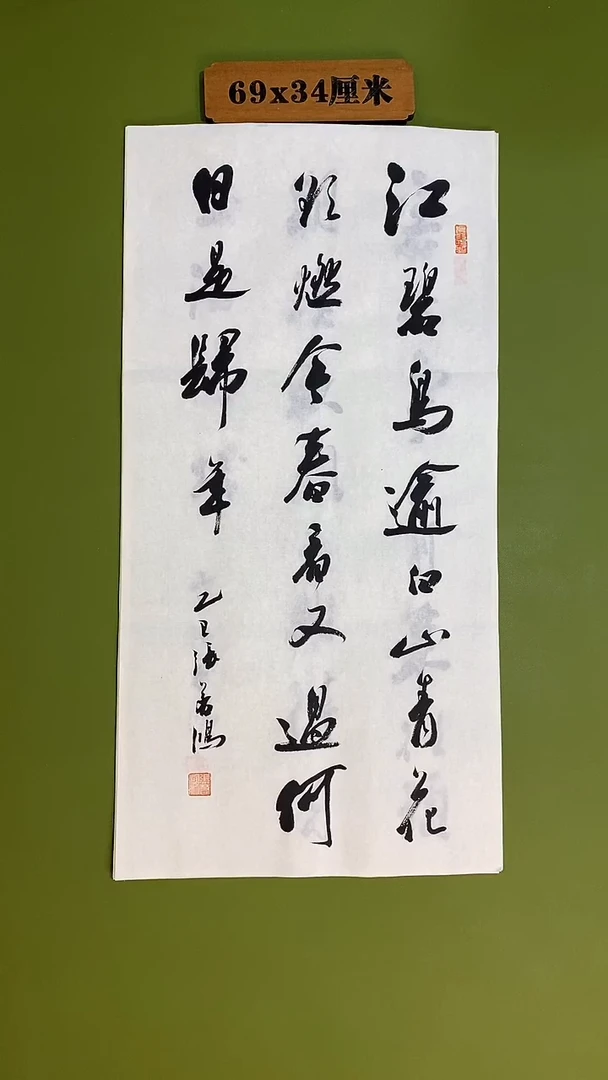 69x34厘米
江碧鸟逾白山青花
欲燃今春看又过何
日是归年
乙巳张善鸿